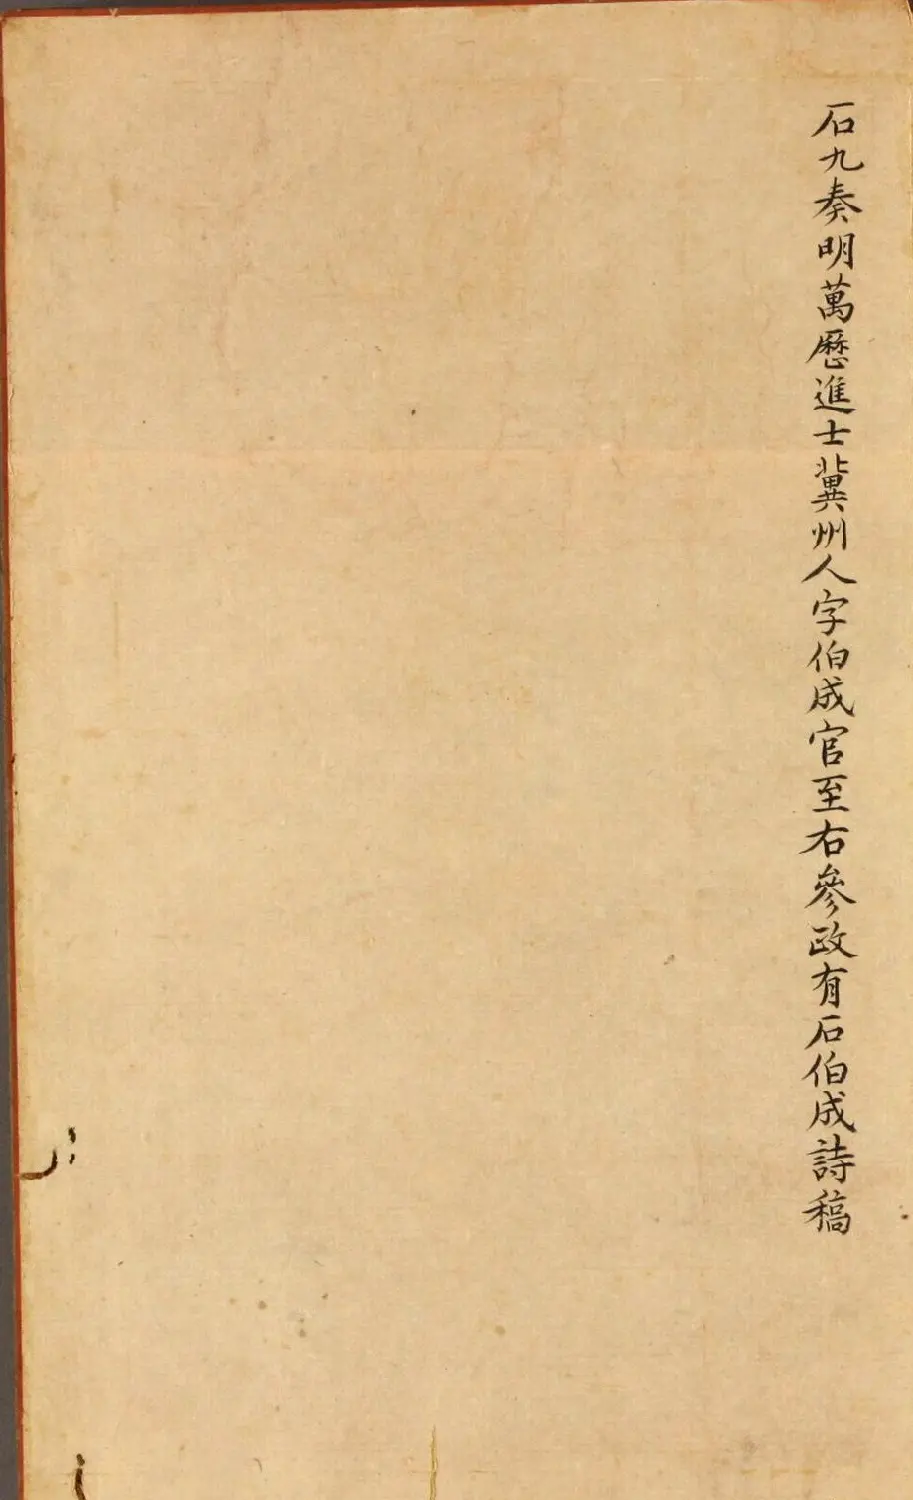 石九奏明萬歷進士冀州人字伯成官至右參政有石伯成詩稿